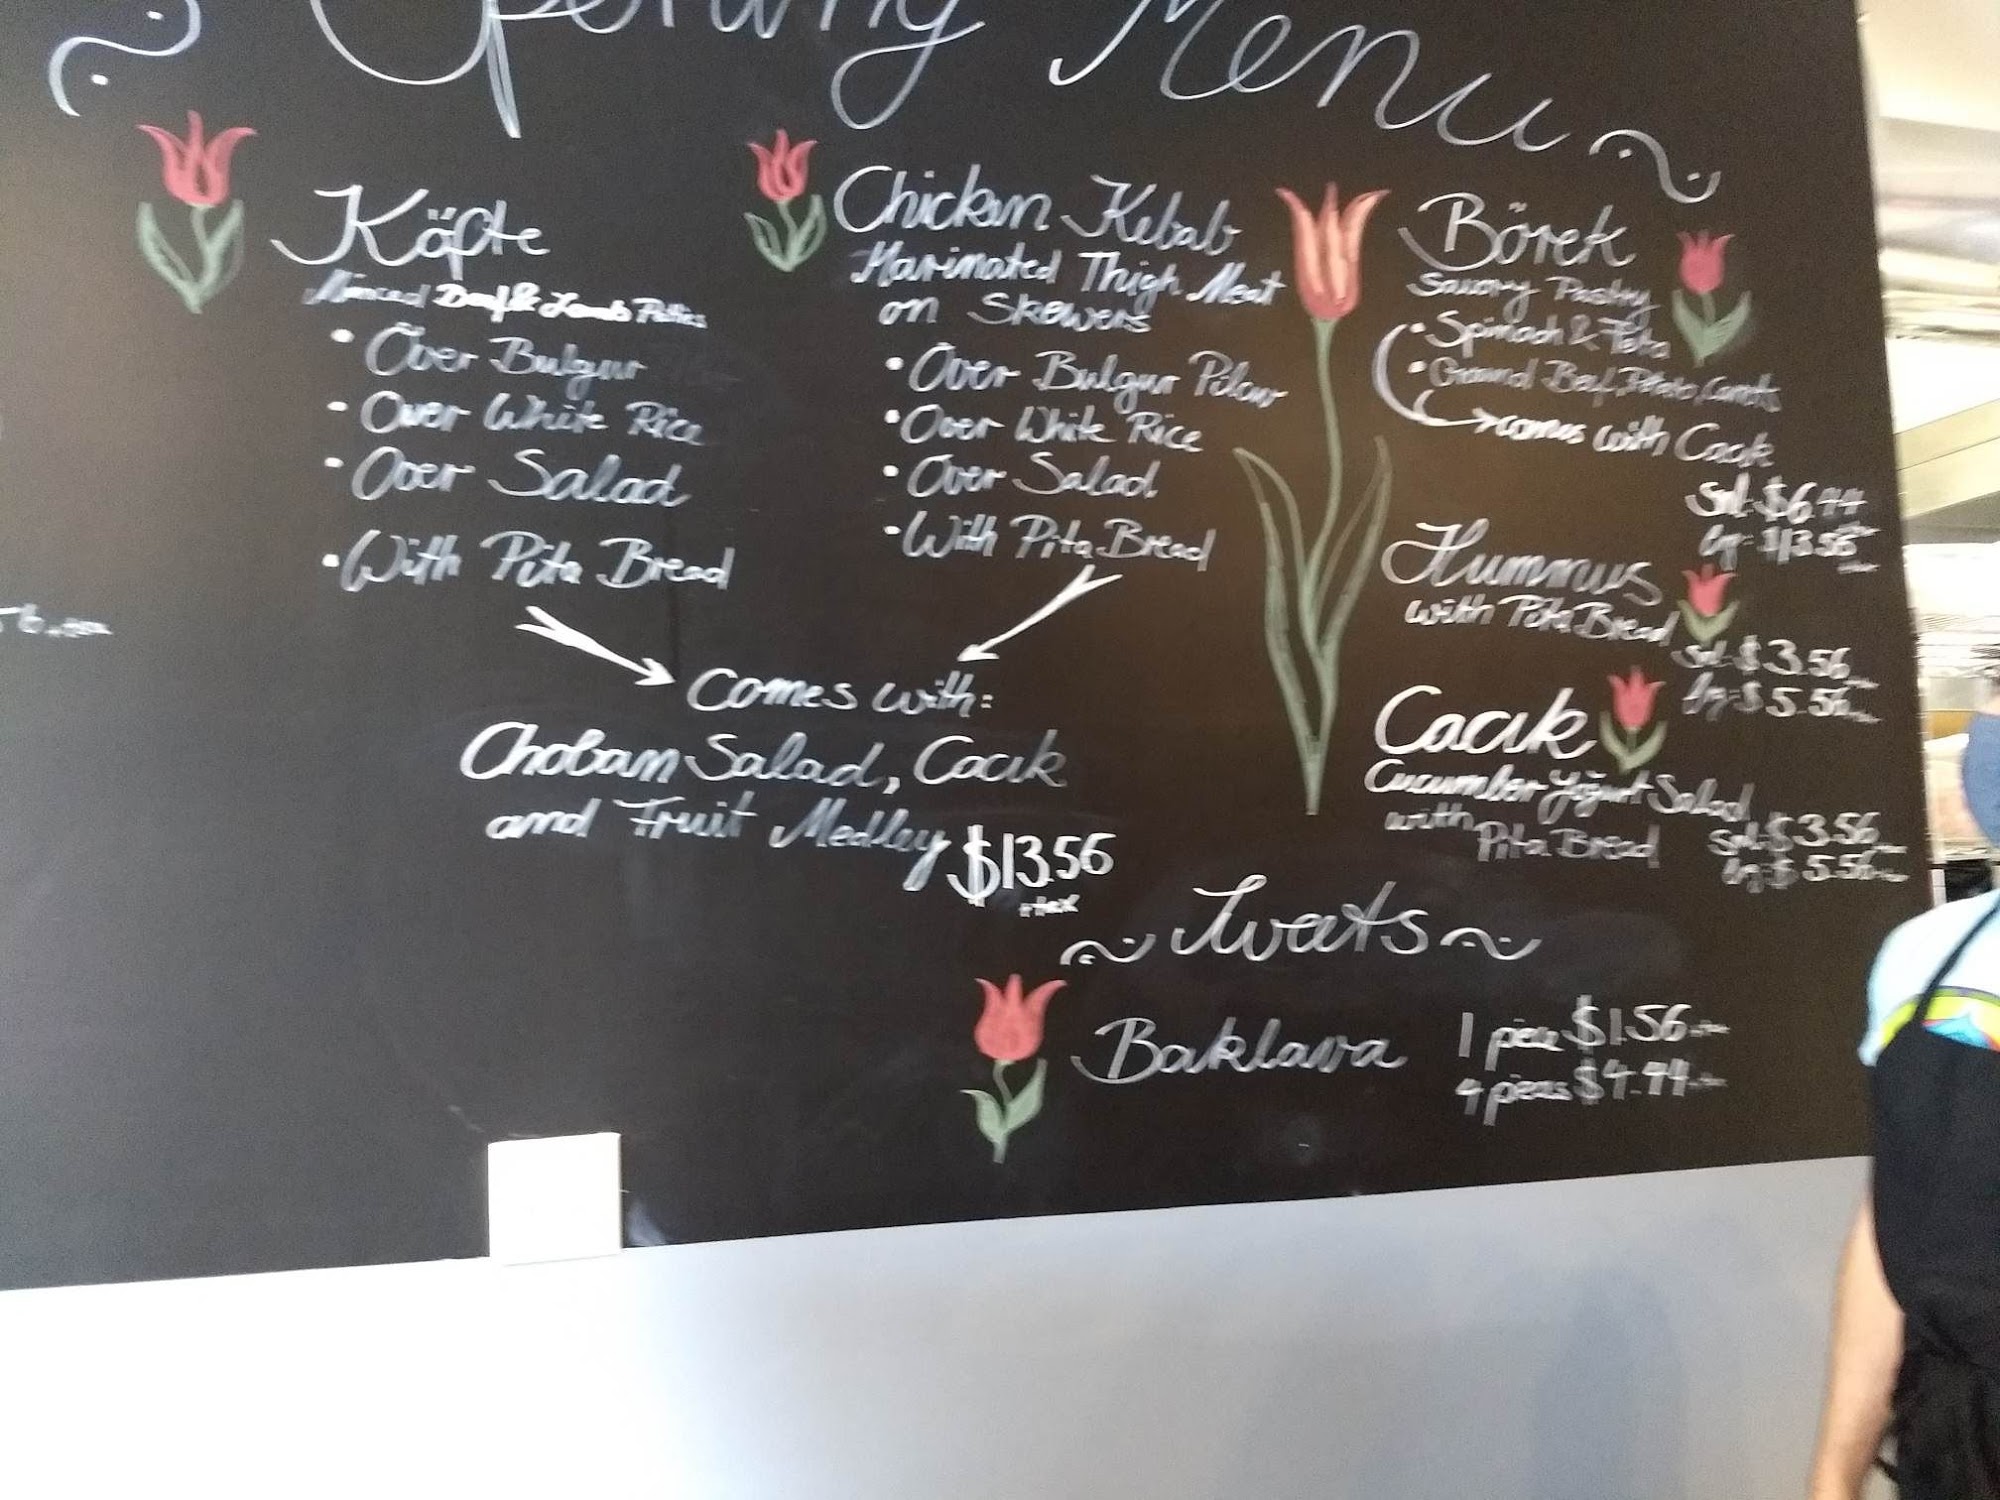 Opening Menu
Köfte
Minced Beef & Lamb Patties
• Over Bulgur
• Over White Rice
• Over Salad
• With Pita Bread
Chicken Kebab
Marinated Thigh Meat
on Skewers
• Over Bulgur Pilaw
• Over White Rice
• Over Salad
• With Pita Bread
comes with:
Choban Salad, Cacık
and Fruit Medley $13.56
+tax
Börek
Savory Pastry
• Spinach & Feta
• Ground Beef, Potato, Carrots
comes with Cacık
Sml: $6.44
lg: $13.56
Hummus
with Pita Bread
Sml: $3.56
lg: $5.56
Cacık
Cucumber Yoğurt Salad
with Pita Bread
Sml: $3.56
lg: $5.56
Sweets
Baklava
1 piece $1.56
4 pieces $4.44